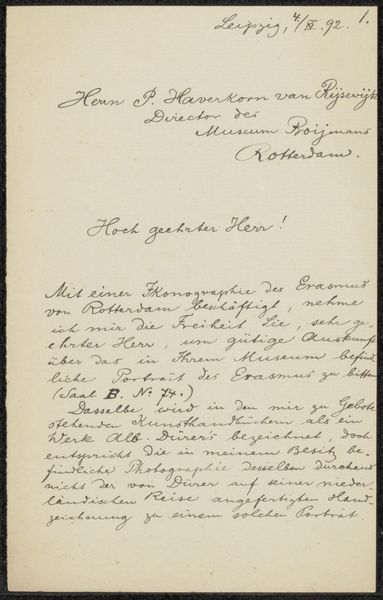 Leipzig, 4/XI. 92. 1.
Herrn P. Haverkorn van Rijsewijk
Director des
Museum Boijmans
Rotterdam.
Hoch geehrter Herr!
Mit einer Ikonographie des Erasmus
von Rotterdam beschäftigt, nehme
ich mir die Freiheit Sie, sehr ge-
ehrter Herr, um gütige Auskunft
über das in Ihrem Museum befind-
liche Porträt des Erasmus zu bitten
(Saal B. No 74.)
Dasselbe wird in den mir zu Gebote
stehenden Kunsthandbüchern als ein
Werk Alb. Dürers bezeichnet, doch
entspricht die in meinem Besitz be-
findliche Photographie desselben durchaus
nicht der von Dürer auf seiner nieder-
ländischen Reise angefertigten Hand-
zeichnung zu einem solchen Porträt.